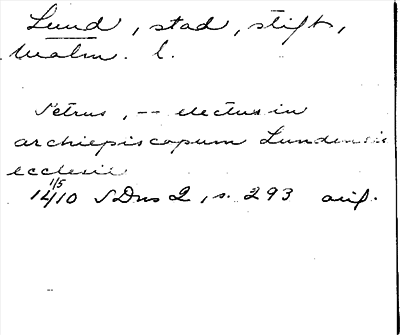 Lund, stad, stift,
Malm. l.
Petrus, -- electus in
archiepiscopum Lundensis
ecclesie
1/5
1410 SDns 2, s. 293 avs.